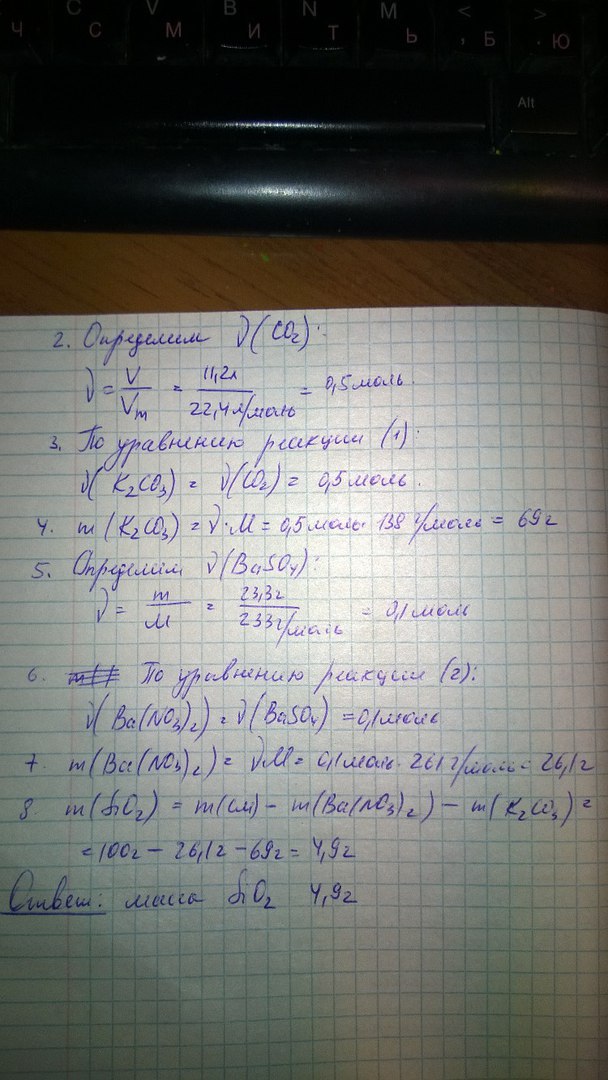 Ч С С V М В И N Т М Ь < , Б > . Ю
Alt
2. Определим ν(CO₂):
ν = V/Vm = 11,2л/22,4л/моль = 0,5 моль.
3. По уравнению реакции (1):
ν(K₂CO₃) = ν(CO₂) = 0,5 моль.
4. m(K₂CO₃) = ν·M = 0,5 моль · 138 г/моль = 69г
5. Определим ν(BaSO₄):
ν = m/M = 23,3г/233г/моль = 0,1 моль
6. По уравнению реакции (2):
ν(Ba(NO₃)₂) = ν(BaSO₄) = 0,1 моль
7. m(Ba(NO₃)₂) = νM = 0,1 моль · 261 г/моль = 26,1г
8. m(SiO₂) = m(см) - m(Ba(NO₃)₂) - m(K₂CO₃) =
= 100г - 26,1г - 69г = 4,9г
Ответ: масса SiO₂ 4,9г